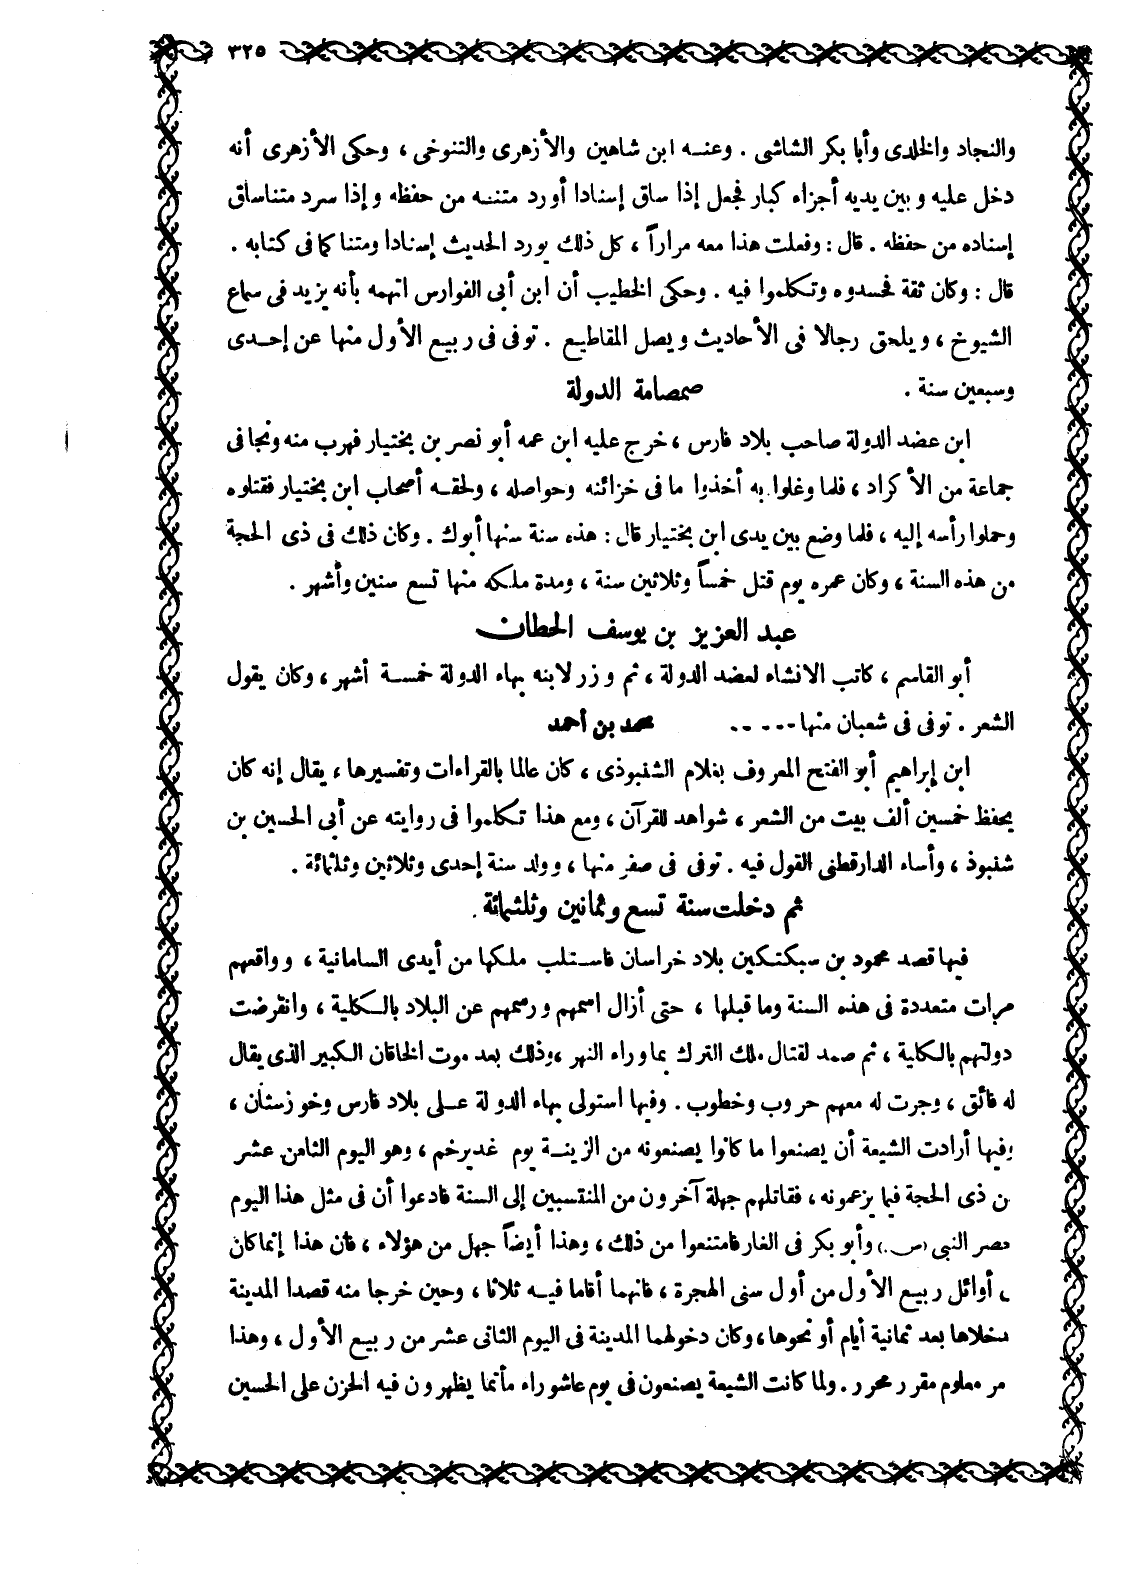 ٣٢٥
والنجاد والخلدى وأبا بكر الشاشى . وعنه ابن شاهين والأزهرى والتنوخى ، وحكى الأزهرى أنه
دخل عليه وبين يديه أجزاء كبار فجعل إذا ساق إسنادا أورد متنه من حفظه وإذا سرد متنا ساق
إسناده من حفظه . قال : وفعلت هذا معه مراراً ، كل ذلك يورد الحديث إسنادا ومتنا كما فى كتابه .
قال : وكان ثقة فحسدوه وتكلموا فيه . وحكى الخطيب أن ابن أبى الفوارس اتهمه بأنه يزيد فى سماع
الشيوخ ، ويلحق رجالا فى الأحاديث ويصل المقاطيع . توفى فى ربيع الأول منها عن إحدى
وسبعين سنة . صمصامة الدولة
ابن عضد الدولة صاحب بلاد فارس ، خرج عليه ابن عمه أبو نصر بن بختيار فهرب منه ونجا فى
جماعة من الأكراد ، فلما وغلوا به أخذوا ما فى خزائنه وحواصله ، ولحقه أصحاب ابن بختيار فقتلوه
وحملوا رأسه إليه ، فلما وضع بين يدى ابن بختيار قال : هذه سنة سنها أبوك . وكان ذلك فى ذى الحجة
من هذه السنة ، وكان عمره يوم قتل خمساً وثلاثين سنة ، ومدة ملكه منها تسع سنين وأشهر .
عبد العزيز بن يوسف الحطان
أبو القاسم ، كاتب الانشاء لعضد الدولة ، ثم وزر لابنه بهاء الدولة خمسة أشهر ، وكان يقول
الشعر . توفى فى شعبان منها ----- محمد بن أحمد
ابن إبراهيم أبو الفتح المعروف بغلام الشنبوذى ، كان عالما بالقراءات وتفسيرها ، يقال إنه كان
يحفظ خمسين ألف بيت من الشعر ، شواهد للقرآن ، ومع هذا تكلموا فى روايته عن أبى الحسين بن
شنبوذ ، وأساء الدارقطنى القول فيه . توفى فى صفر منها ، وولد سنة إحدى وثلاثين وثلثمائة .
ثم دخلت سنة تسع وثمانين وثلثمائة .
فيها قصد محمود بن سبكتكين بلاد خراسان فاستلب ملكها من أيدى السامانية ، وواقعهم
مرات متعددة فى هذه السنة وما قبلها ، حتى أزال اسمهم ورسمهم عن البلاد بالكلية ، وانقرضت
دولتهم بالكلية ، ثم صمد لقتال ملك الترك بما وراء النهر ، وذلك بعد موت الخاقان الكبير الذى يقال
له فائق ، وجرت له معهم حروب وخطوب . وفيها استولى بهاء الدولة على بلاد فارس وخوزستان ،
وفيها أرادت الشيعة أن يصنعوا ما كانوا يصنعونه من الزينة يوم غدير خم ، وهو اليوم الثامن عشر
ن ذى الحجة فيما يزعمونه ، فقاتلهم جهلة آخرون من المنتسبين إلى السنة فادعوا أن فى مثل هذا اليوم
حصر النبى (ص.) وأبو بكر فى الغار فامتنعوا من ذلك ، وهذا أيضاً جهل من هؤلاء ، فان هذا إنما كان
، أوائل ربيع الأول من أول سنى الهجرة ، فانهما أقاما فيه ثلاثا ، وحين خرجا منه قصدا المدينة
دخلاها بعد ثمانية أيام أو نحوها ، وكان دخولهما المدينة فى اليوم الثانى عشر من ربيع الأول ، وهذا
مر معلوم مقرر محرر . ولما كانت الشيعة يصنعون فى يوم عاشوراء مأتما يظهرون فيه الحزن على الحسين